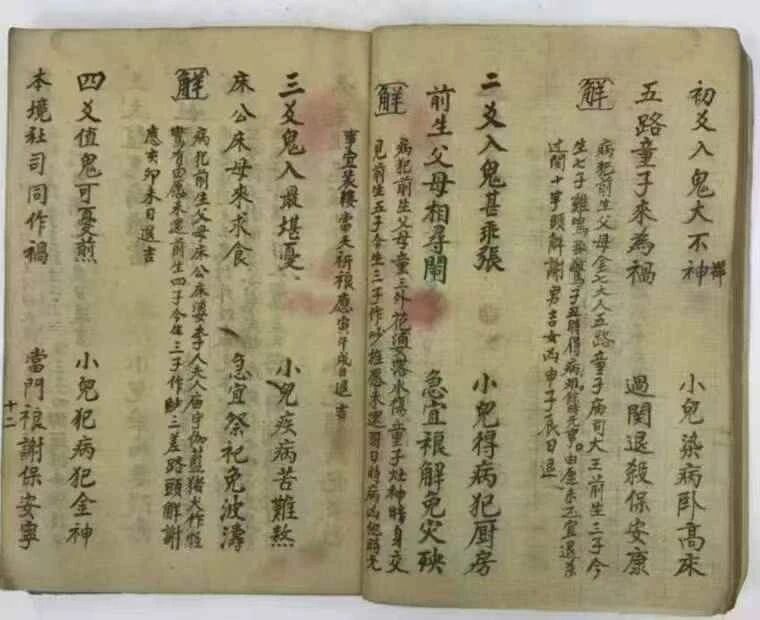 初爻入鬼大不神祥 小兒染病卧高床
五路童子來為禍 過関退殺保安康
解 病犯前生父母金七夫人五路童子病司大王前生三子今
生七子難鳴 子丑時得病 由愿未 宜退煞
过関十字頭解謝男吉女凶申子辰日退
二爻入鬼甚乖張 小兒得病犯厨房
前生父母相尋鬧 急宜禳解免灾殃
解 病犯前生父母童三外花 婆落水傷童子灶神時身交
見前生五子今生三子作吵 愿未還 日時病凶 時光
事宜装棲當天祈禳應寅午戌日退吉
三爻鬼入最堪憂 小兒疾病苦難熬
床公床母來求食 急宜祭祀免波濤
解 病犯前生父母床公床婆李人夫人庙宇伽藍猪犬作怪
驚有由愿未還前生四子今生三子作吵三差路頭解謝
應亥卯未日退吉
四爻值鬼可憂煎 小兒犯病犯金神
本境社司同作禍 當門禳謝保安寧
十二